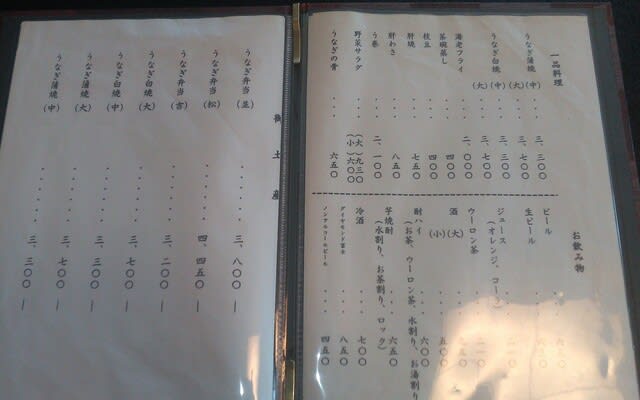 一品料理
うなぎ蒲焼(中)・・三、三〇〇
(大)・・三、七〇〇
うなぎ白焼(中)・・三、三〇〇
(大)・・三、七〇〇
海老フライ・・二、〇〇〇
茶碗蒸し・・四〇〇
枝豆・・四〇〇
肝焼・・七五〇
肝わさ・・八五〇
う巻・・二、一〇〇
野菜サラダ・・(大)九三〇
(小)六〇〇
うなぎの骨・・六五〇
お飲み物
ビール
生ビール
ジュース
(オレンジ、コーラ)
ウーロン茶
酒(大)
(小)・・五〇〇
酎ハイ・・六〇〇
(お茶、ウーロン茶、水割り、お湯割り
芋焼酎・・六五〇
(水割り、お茶割り、ロック)
冷酒・・七〇〇
ダイヤモンド富士・・八五〇
ノンアルコールビール・・四五〇
御土産
うなぎ弁当(並)・・・・・三、八〇〇ー
うなぎ弁当(松)・・・・・四、四五〇ー
うなぎ弁当(吉)・・・・・三、二〇〇ー
うなぎ白焼(大)・・・・・三、七〇〇ー
うなぎ白焼(中)・・・・・三、三〇〇ー
うなぎ蒲焼(大)・・・・・三、七〇〇ー
うなぎ蒲焼(中)・・・・・三、三〇〇ー